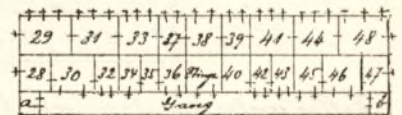 29 31 33 37 38 39 41 44 48
28 30 32 34 35 36 Stiege 40 42 43 45 46 47
a Gang b